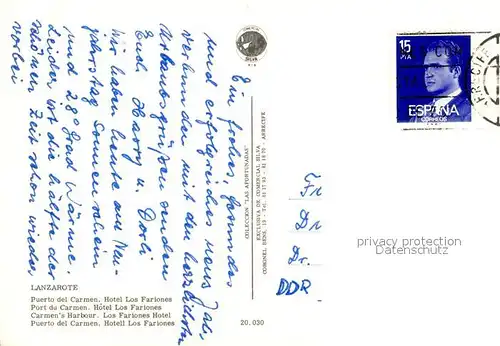 Ein frohes, gesundes
und erfolgreiches neues Jahr,
verbunden mit den herzlichsten
Urlaubsgrüßen senden
Euch Harry u. Dorli
Wir haben heute am Neu-
jahrstag Sonnenschein
und 28 Grad Wärme.
Leider ist die hälfte der
schönen Zeit schon wieder
vorbei
LANZAROTE
Puerto del Carmen. Hotel Los Fariones
Port du Carmen. Hôtel Los Fariones
Carmen's Harbour. Los Fariones Hotel
Puerto del Carmen. Hotell Los Fariones
20.030
COLECCION "LAS AFORTUNADAS"
EXCLUSIVA DE COMERCIAL SILVA
CORONEL BENS, 19 - ARRECIFE
15
PTA
ESPAÑA
CORREOS
Fr
Dr
Dr.
DDR
privacy protection
watermark